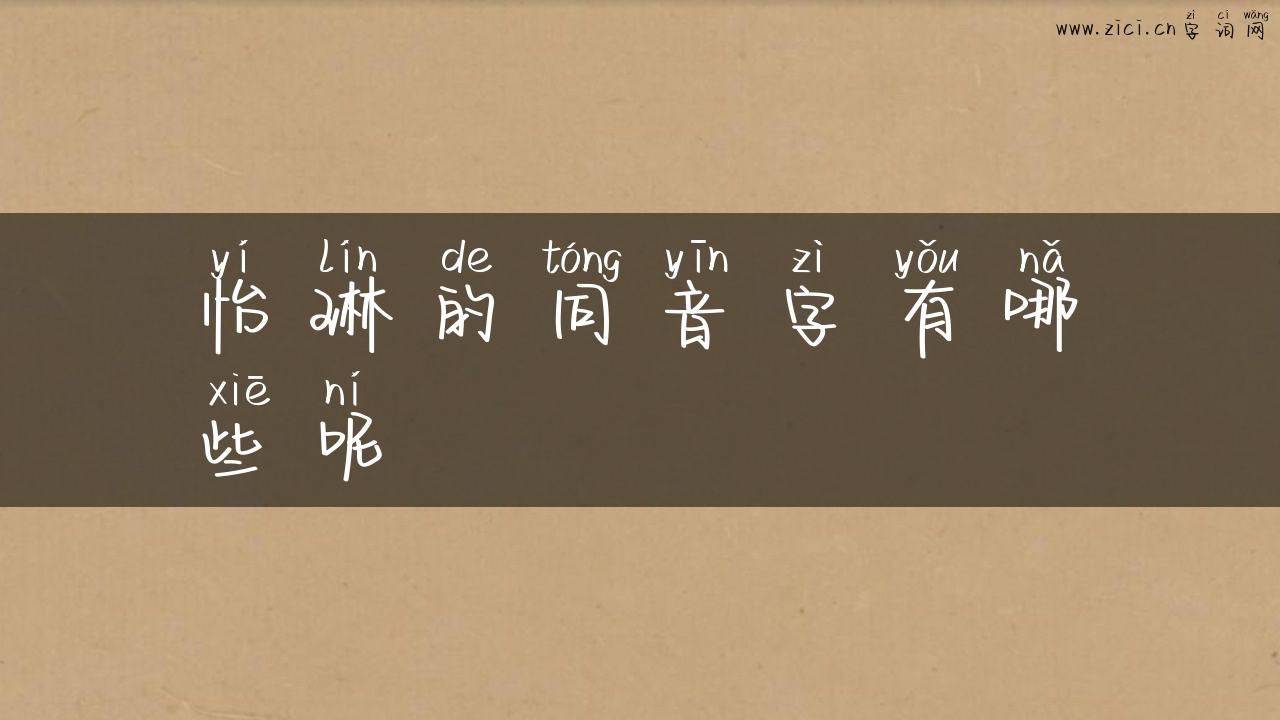 zì cí wǎng
www.zici.cn 字词网
yí lín de tóng yīn zì yǒu nǎ
怡琳的同音字有哪
xiē ní
些呢